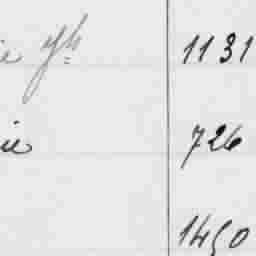 ie 1131
ie 726
1450